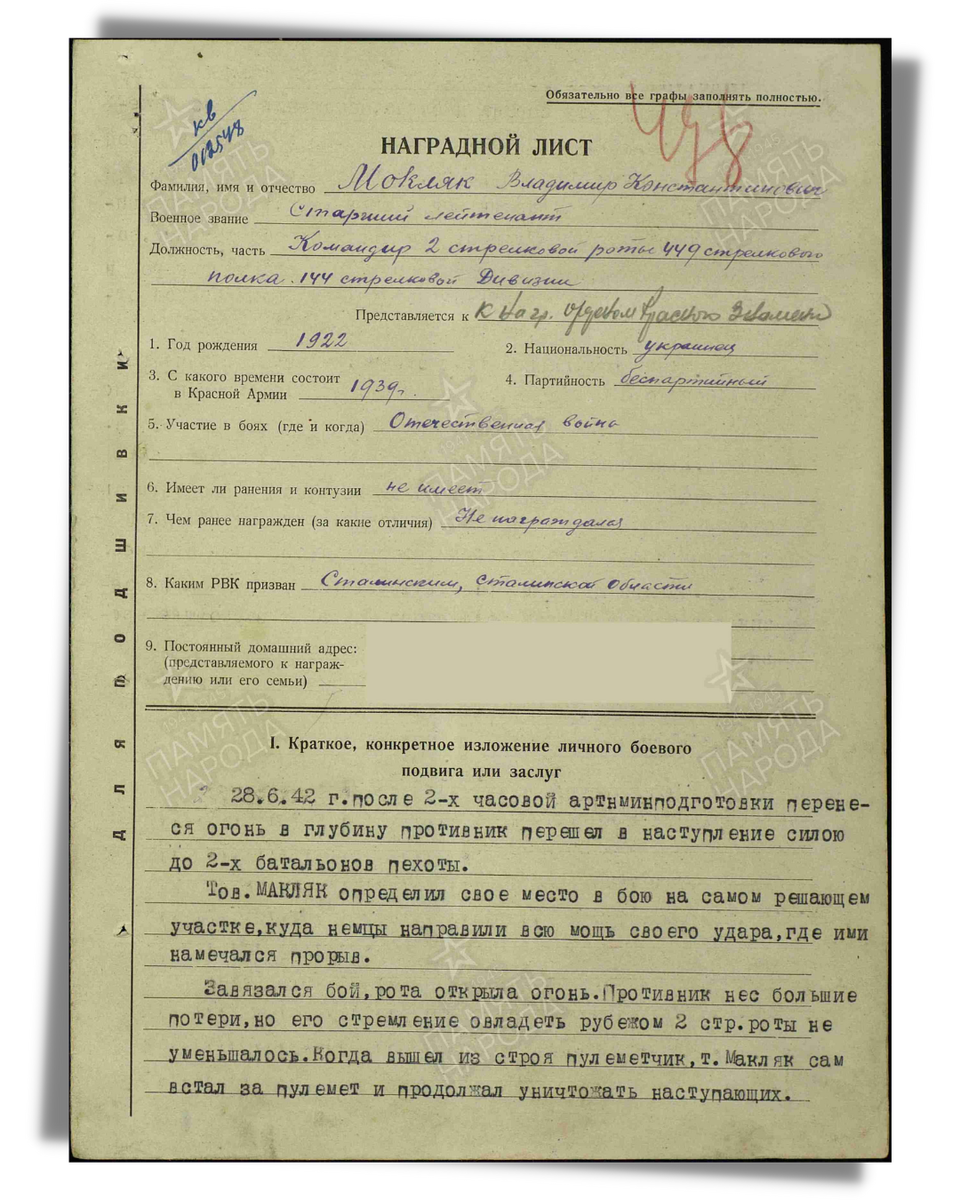 Обязательно все графы заполнять полностью.
КВ
002548
НАГРАДНОЙ ЛИСТ
Фамилия, имя и отчество Мокляк Владимир Константинович
Военное звание Старший лейтенант
Должность, часть Командир 2 стрелковой роты 449 стрелкового
полка. 144 стрелковой Дивизии
Представляется к к нагр. орденом Красного Знамени
1. Год рождения 1922
2. Национальность украинец
3. С какого времени состоит
в Красной Армии 1939г.
4. Партийность беспартийный
5. Участие в боях (где и когда) Отечественная война
6. Имеет ли ранения и контузии не имеет
7. Чем ранее награжден (за какие отличия) Не награждался
8. Каким РВК призван Сталинским, Сталинской области
9. Постоянный домашний адрес:
(представляемого к награж-
дению или его семьи)
Для подшивки
I. Краткое, конкретное изложение личного боевого
подвига или заслуг
28.6.42 г.после 2-х часовой артнминподготовки перене-
ся огонь в глубину противник перешел в наступление силою
до 2-х батальонов пехоты.
Тов.МАКЛЯК определил свое место в бою на самом решающем
участке,куда немцы направили всю мощь своего удара,где ими
намечался прорыв.
Завязался бой,рота открыла огонь.Противник нес большие
потери,но его стремление овладеть рубежом 2 стр.роты не
уменьшалось.Когда вышел из строя пулеметчик,т.Макляк сам
встал за пулемет и продолжал уничтожать наступающих.
ПАМЯТЬ
НАРОДА